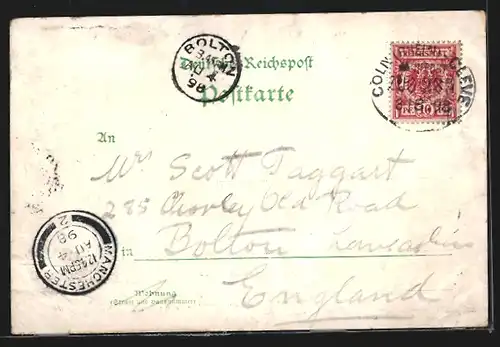 BOLTON
AU 4
98
Deutsche Reichspost
Postkarte
CLEVE
ZUG
An
Mrs Scott Taggart
285 Chorley Old Road
Bolton Lancashire
in
England
Wohnung
(Straße und Hausnummer)
MANCHESTER
12.45PM
AU 4
98
2